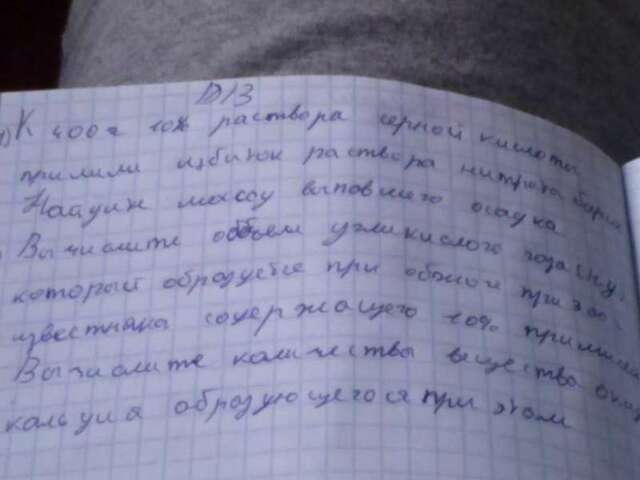 ДЗ
1) К 400г 10% раствора серной кислоты
прилили избыток раствора нитрата бария
Найдите массу выпавшего осадка
Вычислите объем углекислого газа (н.у)
который образуется при обжиге
известняка содержащего 10% примесей
Вычислите количества вещества
кальция образующегося при этом